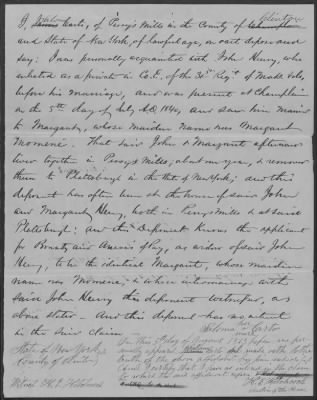 Clinton
I, Earle, of Perry's Mills in the County of
and State of New York, of lawful age, on oath depose and
say: I was personally acquainted with John Henry, who
enlisted as a private in Co. E, of the 30" Regt of Mass Vols,
before his marriage, and was present at Champlain
on the 5th day of July A.D. 184, and saw him married
to Margaret, whose maiden name was Margaret
Momene. That said John & Margaret afterward
lived together in Perry's Mills, about one year, & removed
then to Plattsburgh in the State of New York; and this
deponent has often been at the house of said John
and Margaret Henry, both in Perry's Mills & at said
Plattsburgh: and this deponent knows the applicant
for Bounty and Arrears of Pay, as widow of said John
Henry, to be the identical Margaret, whose maiden
name was Momene, & whose intermarriage with
said John Henry this deponent witnessed, as
above stated. And this deponent has no interest
in the said claim
his
mark
State of New York
County of Clinton
On this 5th day of August 1863 before me per-
sonally appeared and made oath to the
truth of the above
and I certify that I have no interest in the claim
to which the said affidavit
Witness H. D. Hitchcock
H. D. Hitchcock
Justice of the Peace